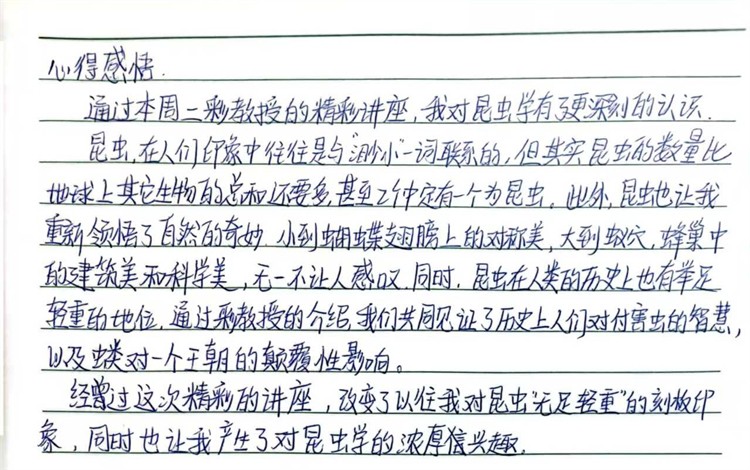 心得感悟.
通过本周二彩教授的精彩讲座，我对昆虫学有了更深刻的认识.
昆虫，在人们印象中往往是与“渺小”一词联系的，但其实昆虫的数量比
地球上其它生物的总和还要多，甚至2个中定有一个为昆虫。此外，昆虫也让我
重新领悟了自然的奇妙.小到蝴蝶翅膀上的对称美，大到蚁穴，蜂巢中
的建筑美和科学美，无一不让人感叹.同时，昆虫在人类的历史上也有举足
轻重的地位.通过彩教授的介绍，我们共同见证了历史上人们对付害虫的智慧，
以及虫类对一个王朝的颠覆性影响。
经曾过这次精彩的讲座，改变了以往我对昆虫“无足轻重”的刻板印
象，同时也让我产生了对昆虫学的浓厚兴趣.